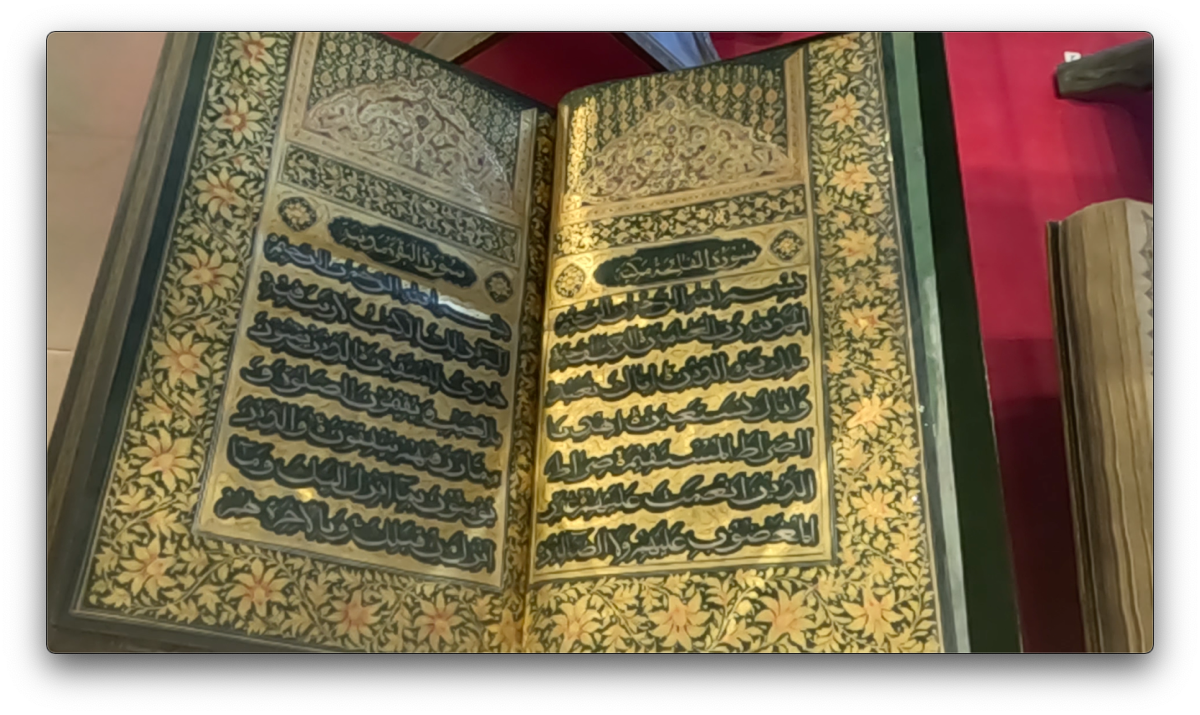 سورة الفاتحة مكية
بسم الله الرحمن الرحيم
الحمد لله رب العالمين الرحمن الرحيم
مالك يوم الدين اياك نعبد
واياك نستعين اهدنا
الصراط المستقيم صراط
الذين انعمت عليهم غير
المغضوب عليهم ولا الضالين
سورة البقرة مدنية
بسم الله الرحمن الرحيم
الم ذلك الكتاب لا ريب فيه
هدى للمتقين الذين يؤمنون
بالغيب ويقيمون الصلوة و
مما رزقناهم ينفقون والذين
يؤمنون بما انزل اليك وما
انزل من قبلك وبالآخرة هم